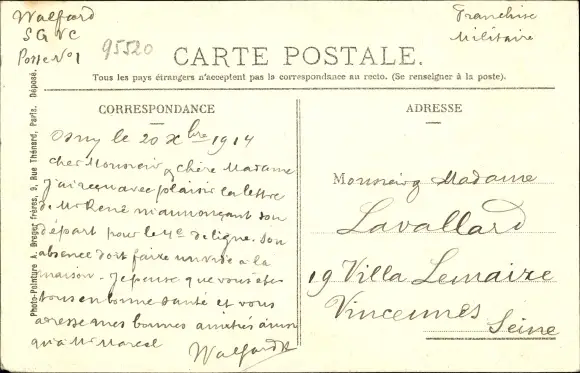 Walfard
SGVC
Poste No 1
95520
Franchise
Militaire
CARTE POSTALE.
Tous les pays étrangers n'acceptent pas la correspondance au recto. (Se renseigner à la poste).
CORRESPONDANCE
Osny le 20 Xbre 1914
Cher Monsieur & chère Madame
J'ai reçu avec plaisir la lettre
de Mr René m'annonçant son
départ pour le 4e de ligne. Son
absence doit faire un vide à la
maison. Je pense que vous êtes
tous en bonne santé et vous
adresse mes bonnes amitiés ainsi
qu'à Mr Marcel
Walfard
ADRESSE
Monsieur & Madame
Lavallard
19 Villa Lemaize
Vincennes
Seine
Photo-Peinture A. Breger frères, 9, Rue Thénard, Paris. Déposé.